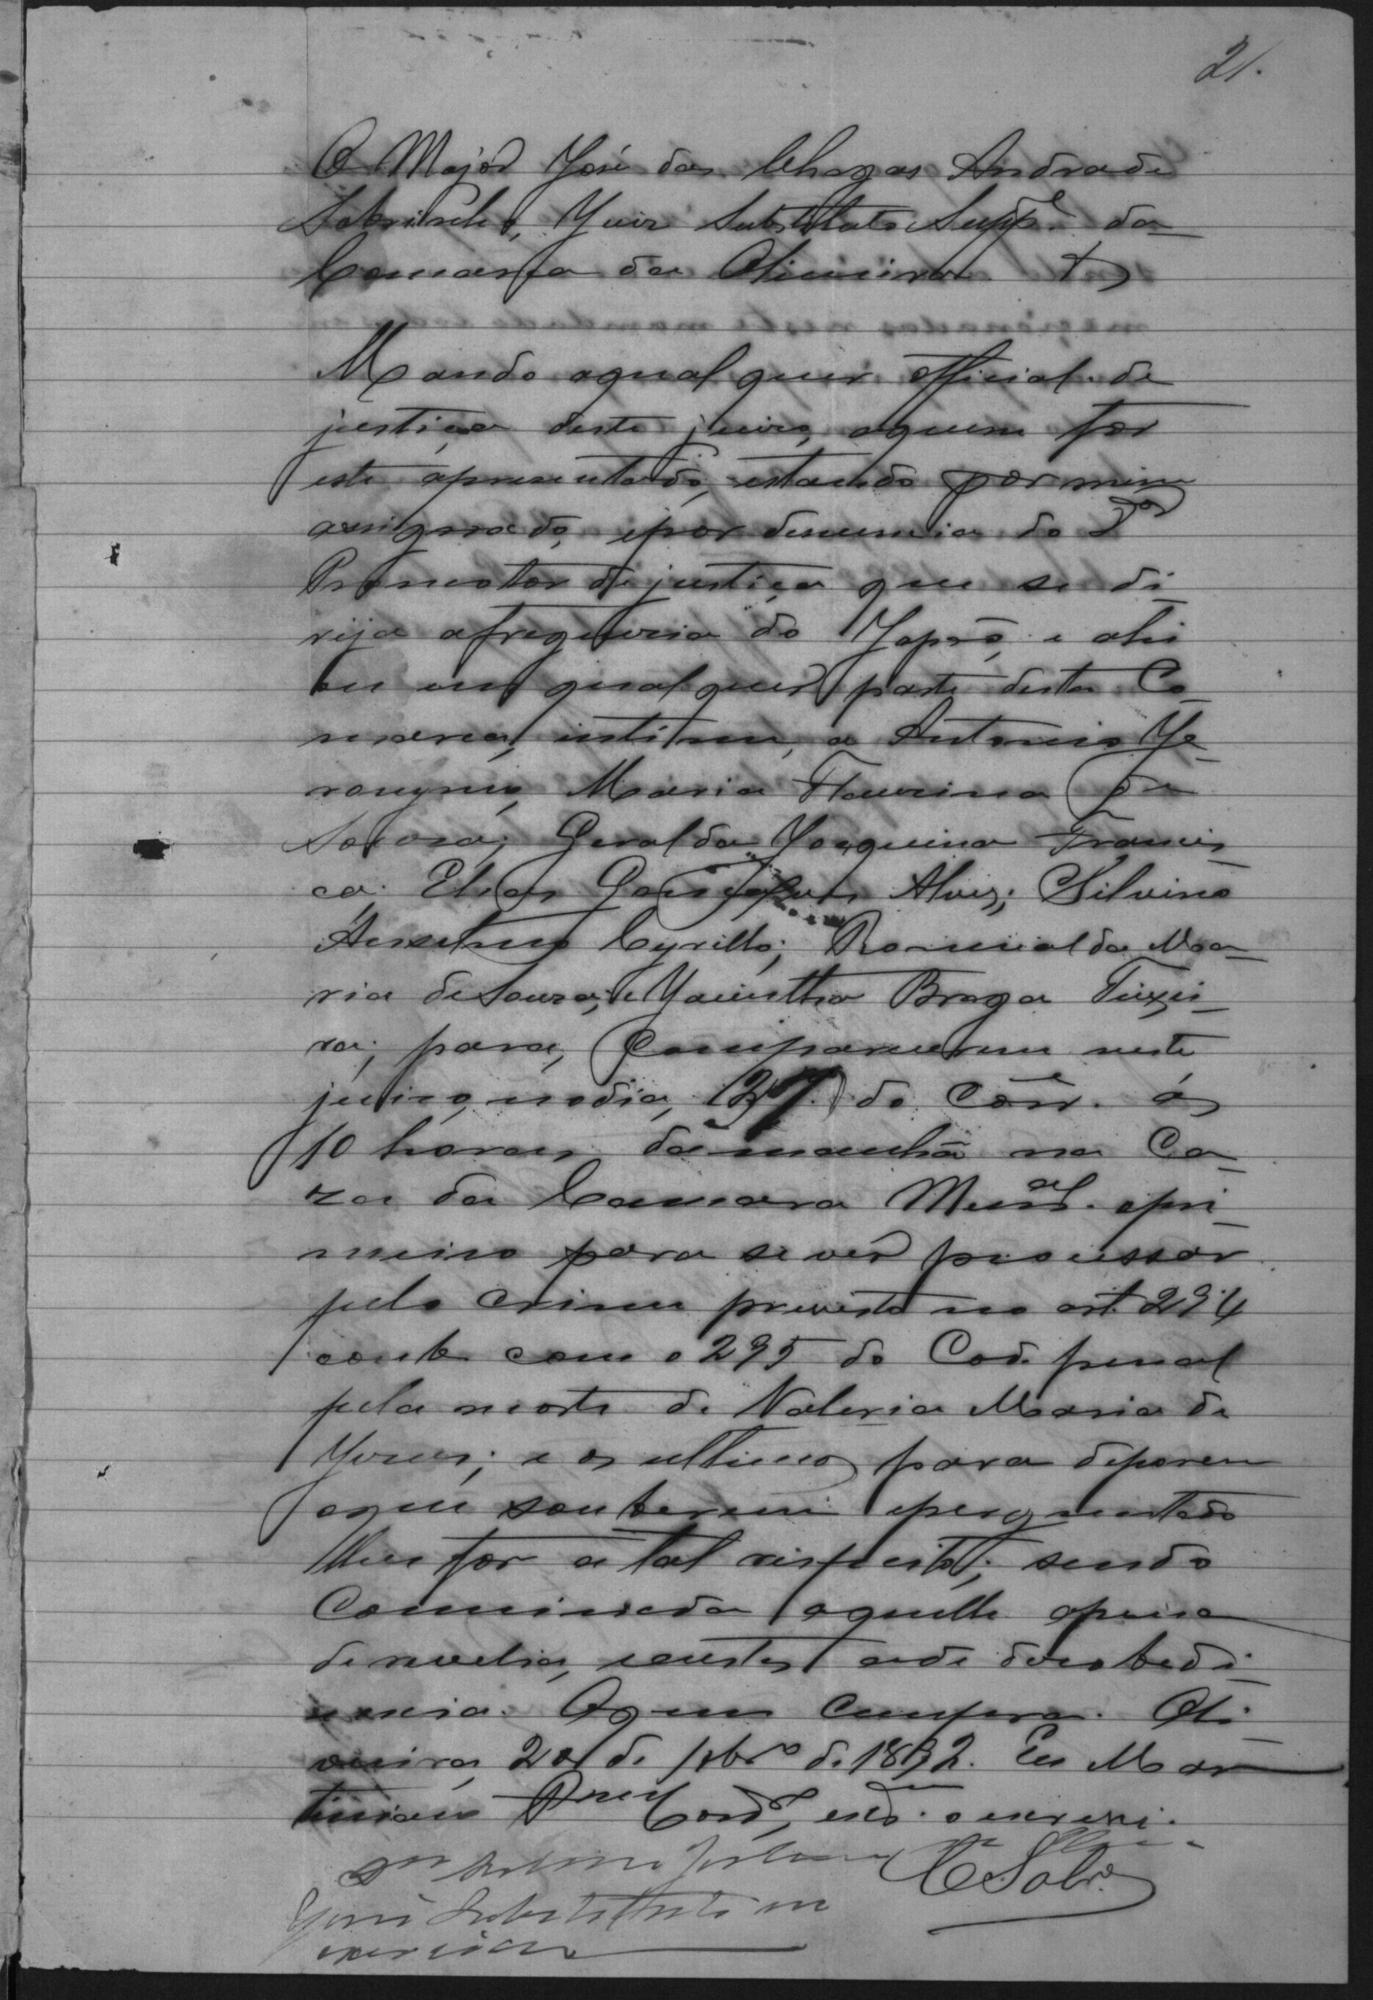 21.
O Major José das Chagas Andrade
Sobrinho, Juiz Substituto Supp.e da
Comarca da Oliveira &
Mando aqualquer official de
justiça deste juizo, aquem for
este apresentado, estando por mim
assignado, epor denuncia do Dor
Promotor de justiça que se di
rija afreguezia do Japão, e ahi
ou em qualquer parte desta Co
marca, intime, a Antonio Je
ronymo, Maria Flauzina de
Souza; Geralda Joaquina Francis
ca; Elias Gonçalves Alves; Silvino
Anselmo Cyrillo; Romualda Ma
ria de Souza; e Jacintho Braga Teixei
ra; para, comparecerem neste
juizo, nodia, 27. do corr.e ás
10 horas damanhã na Ca
za da Camara Munal. opri
meiro para se ver processar
pelo crime previsto no art. 294
comb. com o 295 do Cod. penal
pela morte de Valeria Maria de
Jesus; e os ultimos para deporem
oque souberem eperguntado
lhes for a tal respeito; sendo
Comminada aquelle apena
de revelia, eaestes ade desobedi
encia. Oque cumpra. Oli
veira, 20 de 7bro de 1892. Eu Mar
tiniano Cord., escr.am o escrevi.
C. Sobr.o
Juiz Substituto em
exercicio